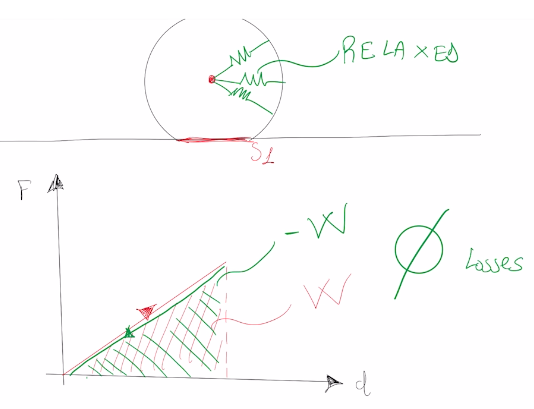 RELAXED
S1
F
-W
W
Ø Losses
d